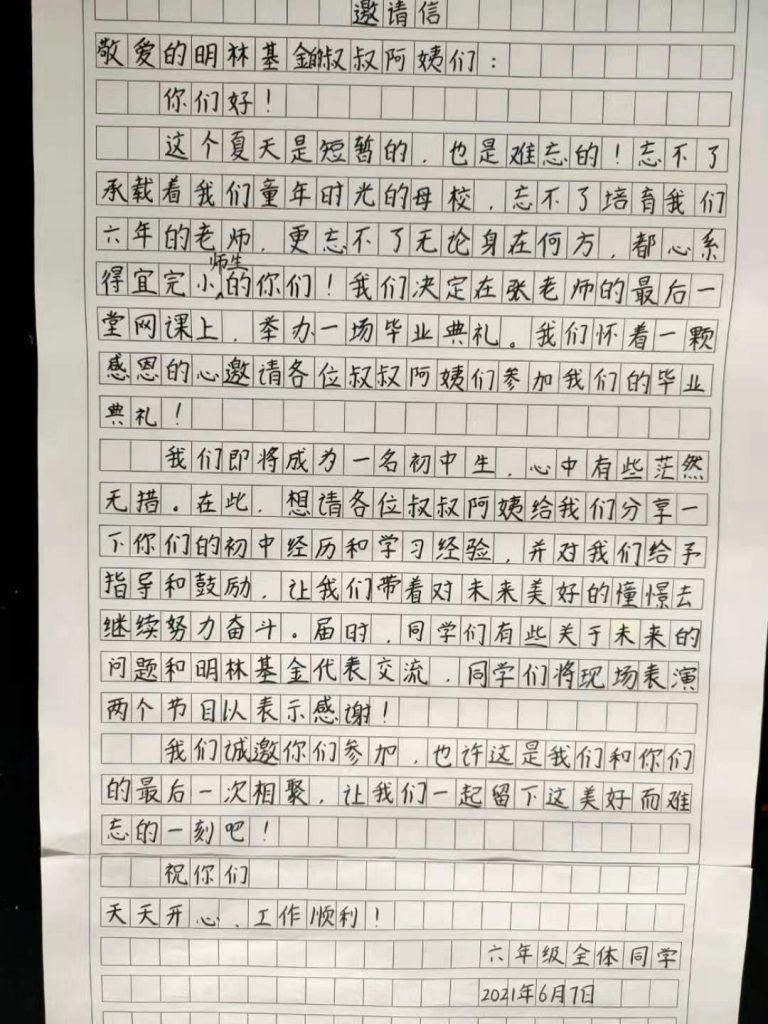 邀请信
敬爱的明林基金的叔叔阿姨们：
你们好！
这个夏天是短暂的，也是难忘的！忘不了
承载着我们童年时光的母校，忘不了培育我们
六年的老师，更忘不了无论身在何方，都心系
得宜完小师生的你们！我们决定在张老师的最后一
堂网课上，举办一场毕业典礼。我们怀着一颗
感恩的心邀请各位叔叔阿姨们参加我们的毕业
典礼！
我们即将成为一名初中生，心中有些茫然
无措。在此，想请各位叔叔阿姨给我们分享一
下你们的初中经历和学习经验，并对我们给予
指导和鼓励，让我们带着对未来美好的憧憬去
继续努力奋斗。届时，同学们有些关于未来的
问题和明林基金代表交流，同学们将现场表演
两个节目以表示感谢！
我们诚邀你们参加，也许这是我们和你们
的最后一次相聚，让我们一起留下这美好而难
忘的一刻吧！
祝你们
天天开心、工作顺利！
六年级全体同学
2021年6月7日